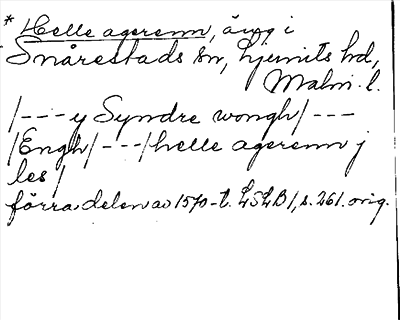 * Helle agerenn, äng i
Snårestads sn, Ljunits hd,
Malm. l.
/--- y Syndre wongh/---
/Engh/---/helle agerenn j
les/
förra delen av 1570-t. LSLB/, s. 261. orig.